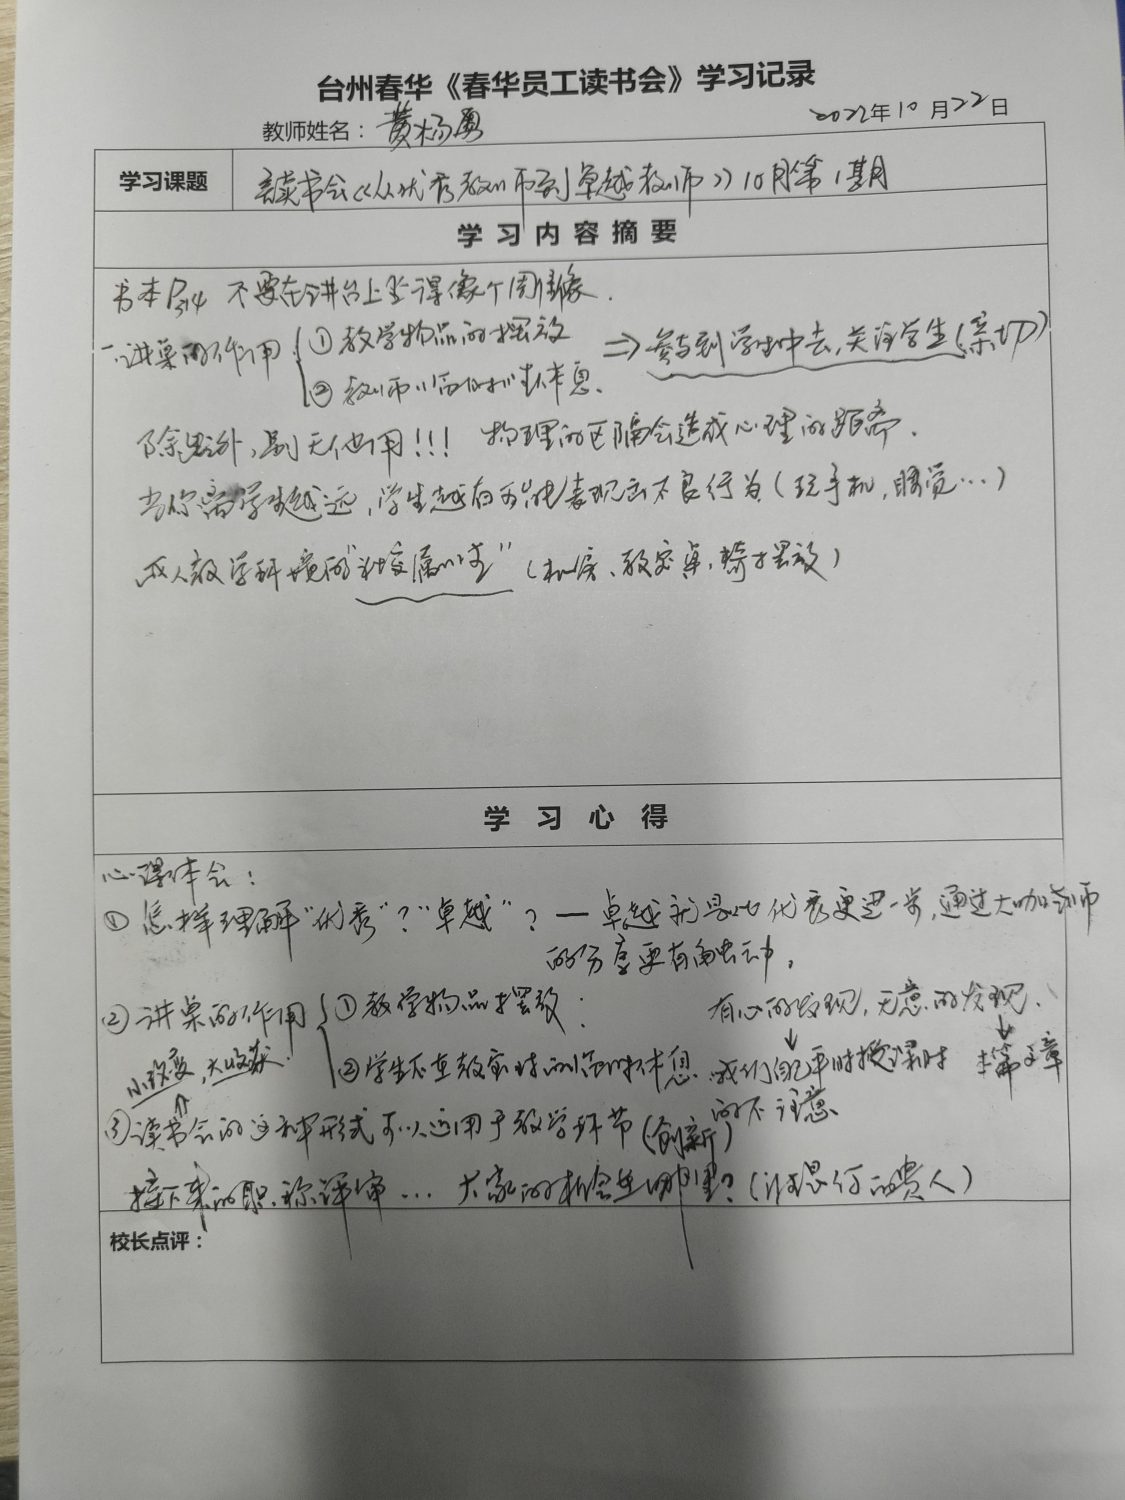 台州春华《春华员工读书会》学习记录
教师姓名：黄杨勇 2022年10月22日
学习课题 读书会《从优秀教师到卓越教师》10月第1期
学习内容摘要
书本P314 不要在讲台上坐得像个周像.
一.讲桌的作用 ①教学物品的摆放 ⇒参与到学生中去,关注学生(亲切)
②教师临时休息.
除此外,别无他用!!! 物理的区隔会造成心理的距离.
当你离学生越远,学生越有可能表现出不良行为(玩手机,睡觉…)
成人教学环境的"社交属性"(机房、教室桌,椅摆放)
学习心得
心得体会:
①怎样理解"优秀"?"卓越"?—卓越就是比优秀更进一步,通过大咖老师
的分享更有
②讲桌的作用 ①教学物品摆放. 有心的发现,无意的发现.
小改变,大收获. ②学生不在教室时的临时休息 我们自己平时授课时 本篇文章
③读书会的这种形式可以运用于教学环节(创新) 的不注意
接下来的职称评审… 大家的机会在哪里?(谁是你的贵人)
校长点评：